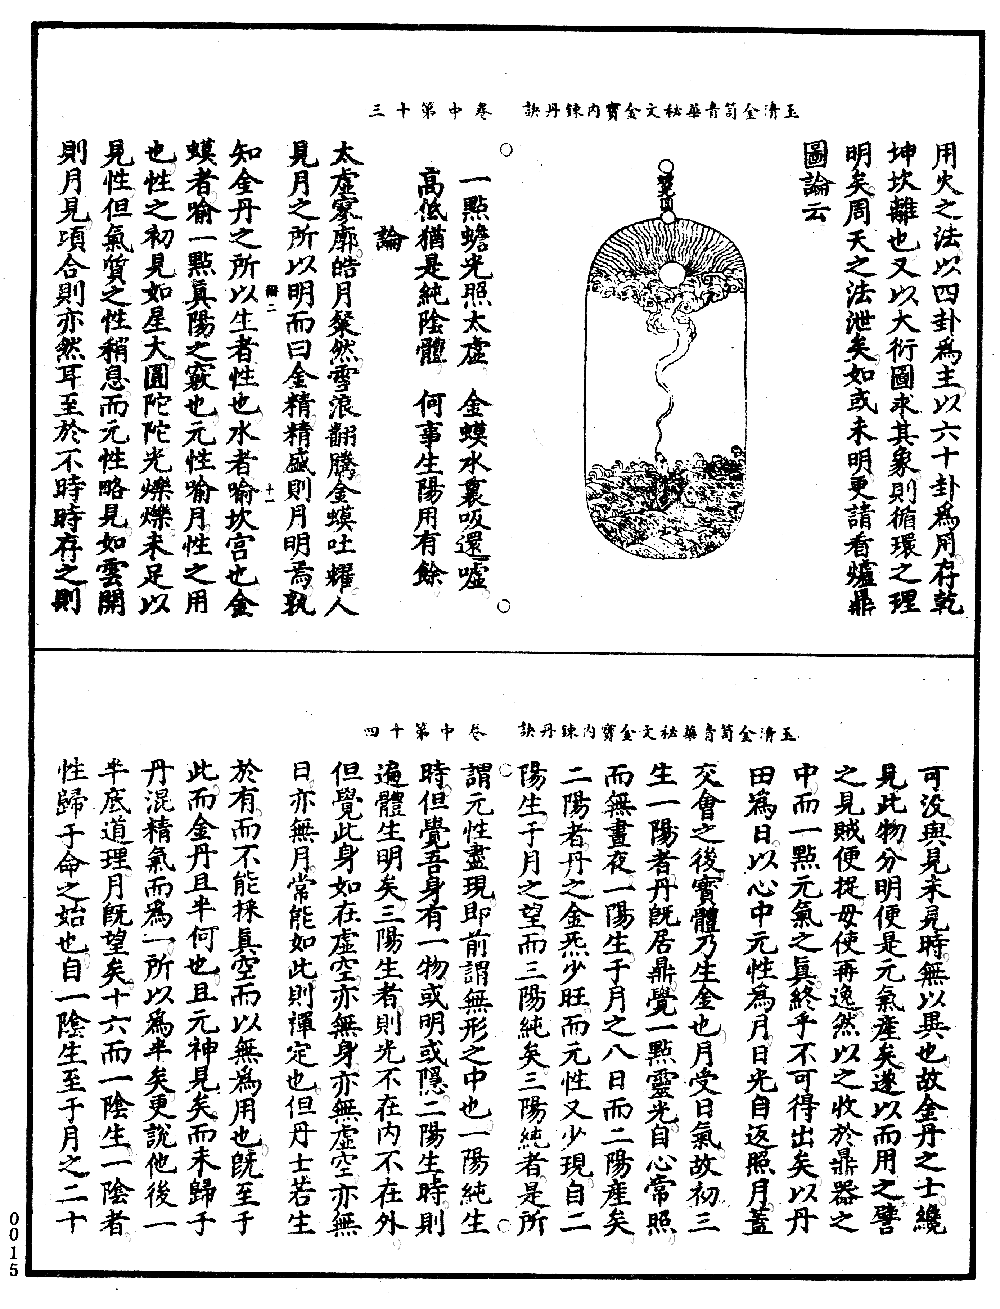 玉清金笥青華秘文金寶內鍊丹訣　卷中第十三
用火之法以四卦爲主以六十卦爲用存乾
坤坎離也又以大衍圖求其象則循環之理
明矣周天之法泄矣如或未明更請看爐鼎
圖論云
一點蟾光照太虛　金蟆水裏吸還噓
高低猶是純陰體　何事生陽用有餘
論
太虛寥廓皓月粲然雪浪翻騰金蟆吐耀人
見月之所以明而曰金精精盛則月明焉孰
知金丹之所以生者性也水者喻坎宮也金
蟆者喻一點真陽之竅也元性喻月性之用
也性之初見如星大圓陀陀光爍爍未足以
見性但氣質之性稍息而元性略見如雲開
則月見頃合則亦然耳至於不時時存之則
玉清金笥青華秘文金寶內鍊丹訣　卷中第十四
可没與見未見時無以異也故金丹之士纔
見此物分明便是元氣產矣遂以而用之譬
之見賊便捉毋使再逸然以之收於鼎器之
中而一點元氣之真終乎不可得出矣以丹
田爲日以心中元性爲月日光自返照月蓋
交會之後寳體乃生金也月受日氣故初三
生一陽者丹旣居鼎覺一點靈光自心常照
而無晝夜一陽生于月之八日而二陽產矣
二陽者丹之金炁少旺而元性又少現自二
陽生于月之望而三陽純矣三陽純者是所
謂元性盡現即前謂無形之中也一陽純生
時但覺吾身有一物或明或隱二陽生時則
遍體生明矣三陽生者則光不在內不在外
但覺此身如在虛空亦無身亦無虛空亦無
日亦無月常能如此則禪定也但丹士若生
於有而不能採真空而以無爲用也旣至于
此而金丹且半何也且元神見矣而未歸于
丹混精氣而爲一所以爲半矣更說他後一
半底道理月旣望矣十六而一陰生一陰者
性歸于命之始也自一陰生至于月之二十
0015